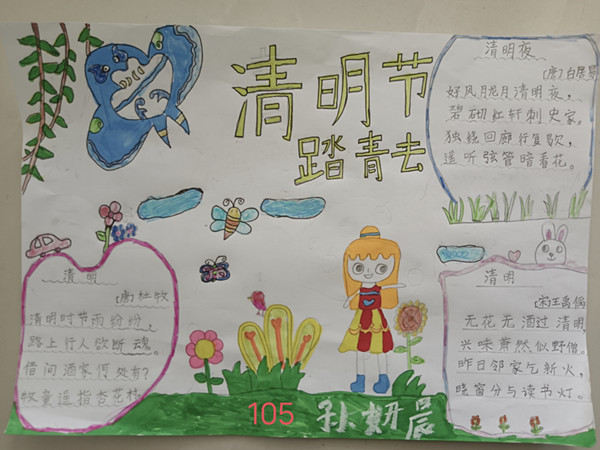 清明节
踏青去
清明夜
[唐]白居易
好风胧月清明夜，
碧砌红轩刺史家。
独绕回廊行复歇，
遥听弦管暗看花。
清明
[唐]杜牧
清明时节雨纷纷，
路上行人欲断魂。
借问酒家何处有？
牧童遥指杏花村。
清明
[宋]王禹偁
无花无酒过清明，
兴味萧然似野僧。
昨日邻家乞新火，
晓窗分与读书灯。
105
孙妍晨